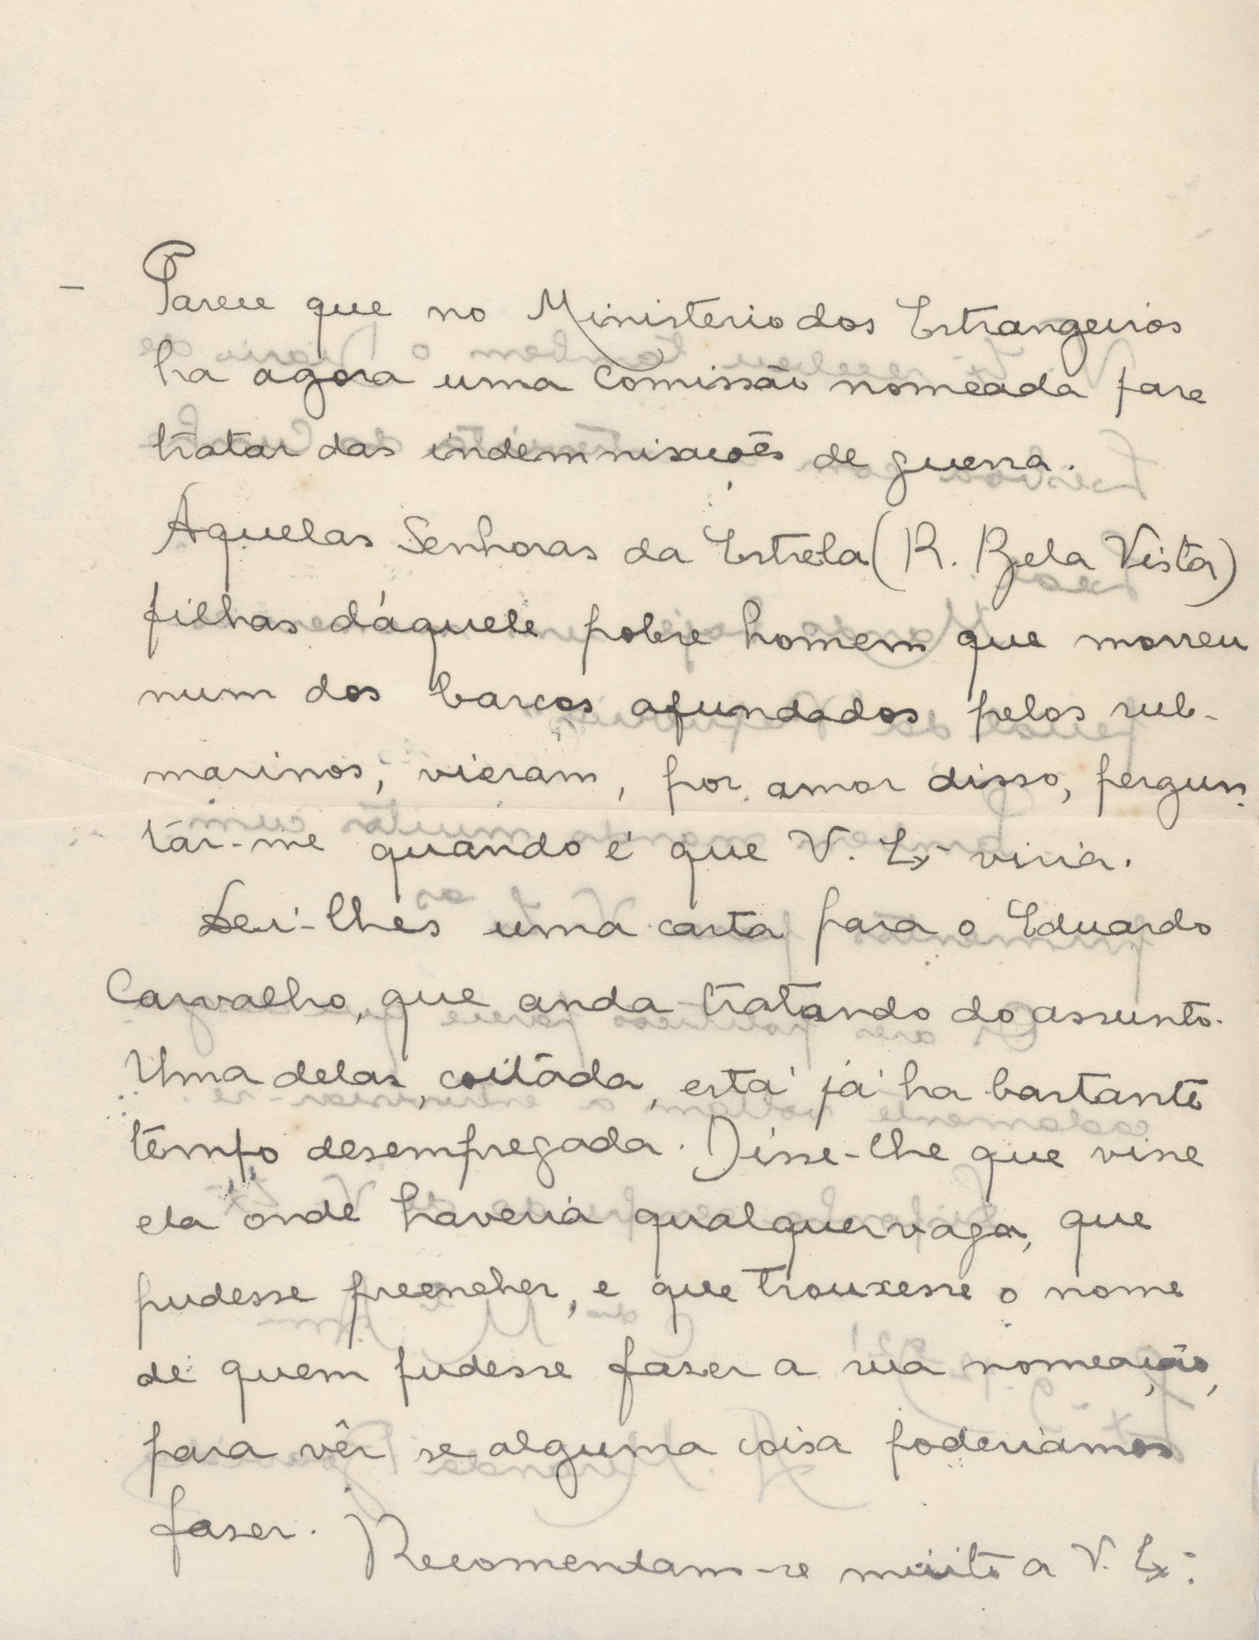 – Parece que no Ministério dos Estrangeiros
ha agora uma Comissão nomeada para
tratar das indemnisações de guerra.
Aquelas Senhoras da Estrela (R. Bela Vista)
filhas dáquele pobre homem que morreu
num dos barcos afundados pelos sub-
marinos, vieram, por amor disso, pergun-
tár-me quando é que V. Ex.ª viria.
Dei-lhes uma carta para o Eduardo
Carvalho, que anda tratando do assunto.
Uma delas, coitada, está já ha bastante
tempo desempregada. Disse-lhe que visse
ela onde haveria qualquer vaga, que
pudesse preencher, e que trouxesse o nome
de quem pudesse fazer a sua nomeação,
para vêr se alguma coisa poderiamos
fazer. Recomendam-se muito a V. Ex.ª